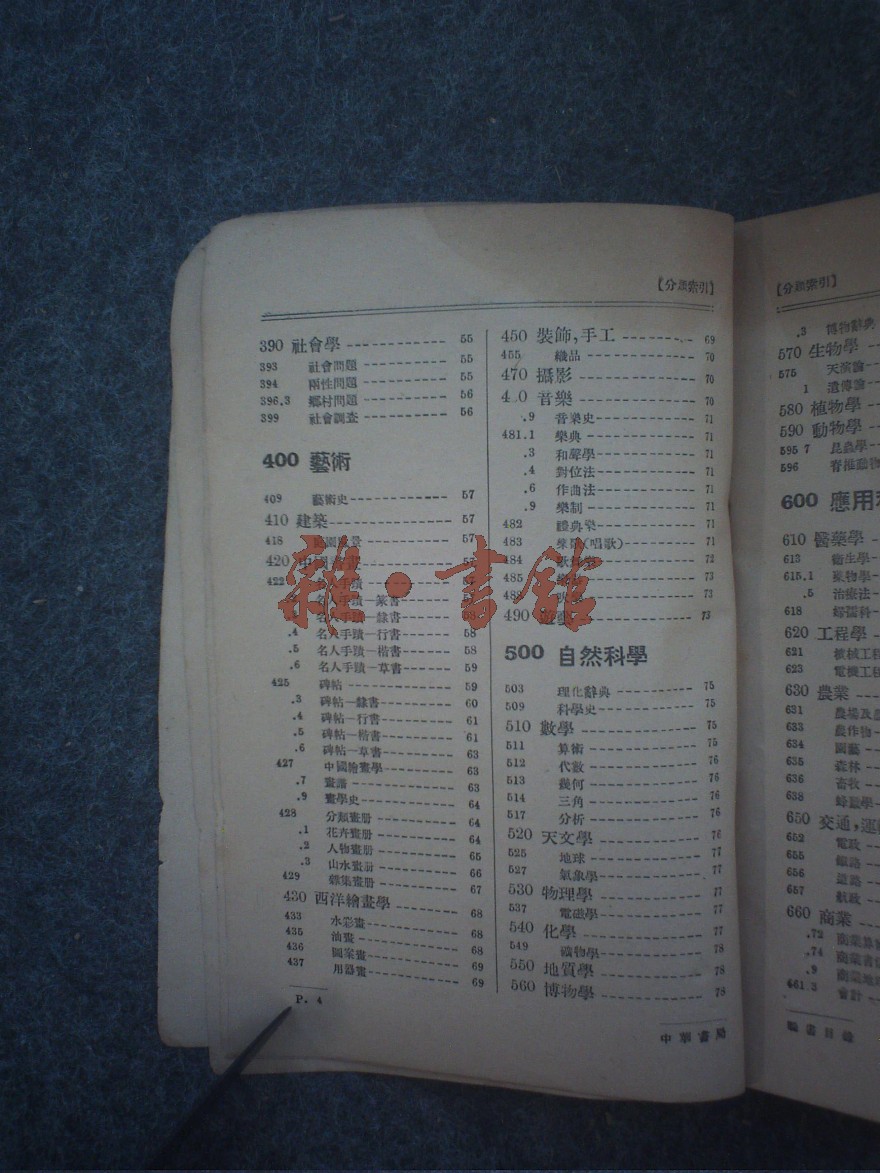 【分類索引】
390 社會學 55
393 社會問題 55
394 兩性問題 55
396.3 鄉村問題 56
399 社會調查 56
400 藝術
409 藝術史 57
410 建築 57
418 57
420 中國書畫 57
422 名人手蹟
名人手蹟－篆書
名人手蹟－隸書 58
.4 名人手蹟－行書 58
.5 名人手蹟－楷書 58
.6 名人手蹟－草書 59
425 碑帖 59
.3 碑帖－隸書 60
.4 碑帖－行書 61
.5 碑帖－楷書 61
.6 碑帖－草書 63
427 中國繪畫學 63
.7 畫譜 63
.9 畫學史 64
428 分類畫册 64
.1 花卉畫册 64
.2 人物畫册 65
.3 山水畫册 66
429 雜集畫册 67
430 西洋繪畫學 68
433 水彩畫 68
435 油畫 68
436 圖案畫 69
437 用器畫 69
P. 4
450 裝飾,手工 69
455 織品 70
470 攝影 70
4 0 音樂 71
.9 音樂史 71
481.1 樂典 71
.3 和聲學 71
.4 對位法 71
.6 作曲法 71
.9 樂制 71
482 禮典樂 71
483 聲樂(唱歌) 71
484 72
485 73
488 73
490 遊藝 73
500 自然科學
503 理化辭典 75
509 科學史 75
510 數學 75
511 算術 75
512 代數 76
513 幾何 76
514 三角 76
517 分析 76
520 天文學 76
525 地球 77
527 氣象學 77
530 物理學 77
537 電磁學 77
540 化學 77
549 礦物學 78
550 地質學 78
560 博物學 78
中華書局
雜·書館
【分類索引】
.3 博物辭典
570 生物學
575 天演論
1 遺傳論
580 植物學
590 動物學
595 7 昆蟲學
596 脊椎動物
600 應用科
610 醫藥學
613 衛生學
615.1 藥物學
.5 治療法
618 婦孺科
620 工程學
621 機械工程
623 電機工程
630 農業
631 農場及農
633 農作物
634 園藝
635 森林
636 畜牧
638 蜂蠶學
650 交通,運輸
652 電政
655 鐵路
656 道路
657 航政
660 商業
.72 商業算
.74 商業書
.9 商業地
461.3 會計
圖書目錄